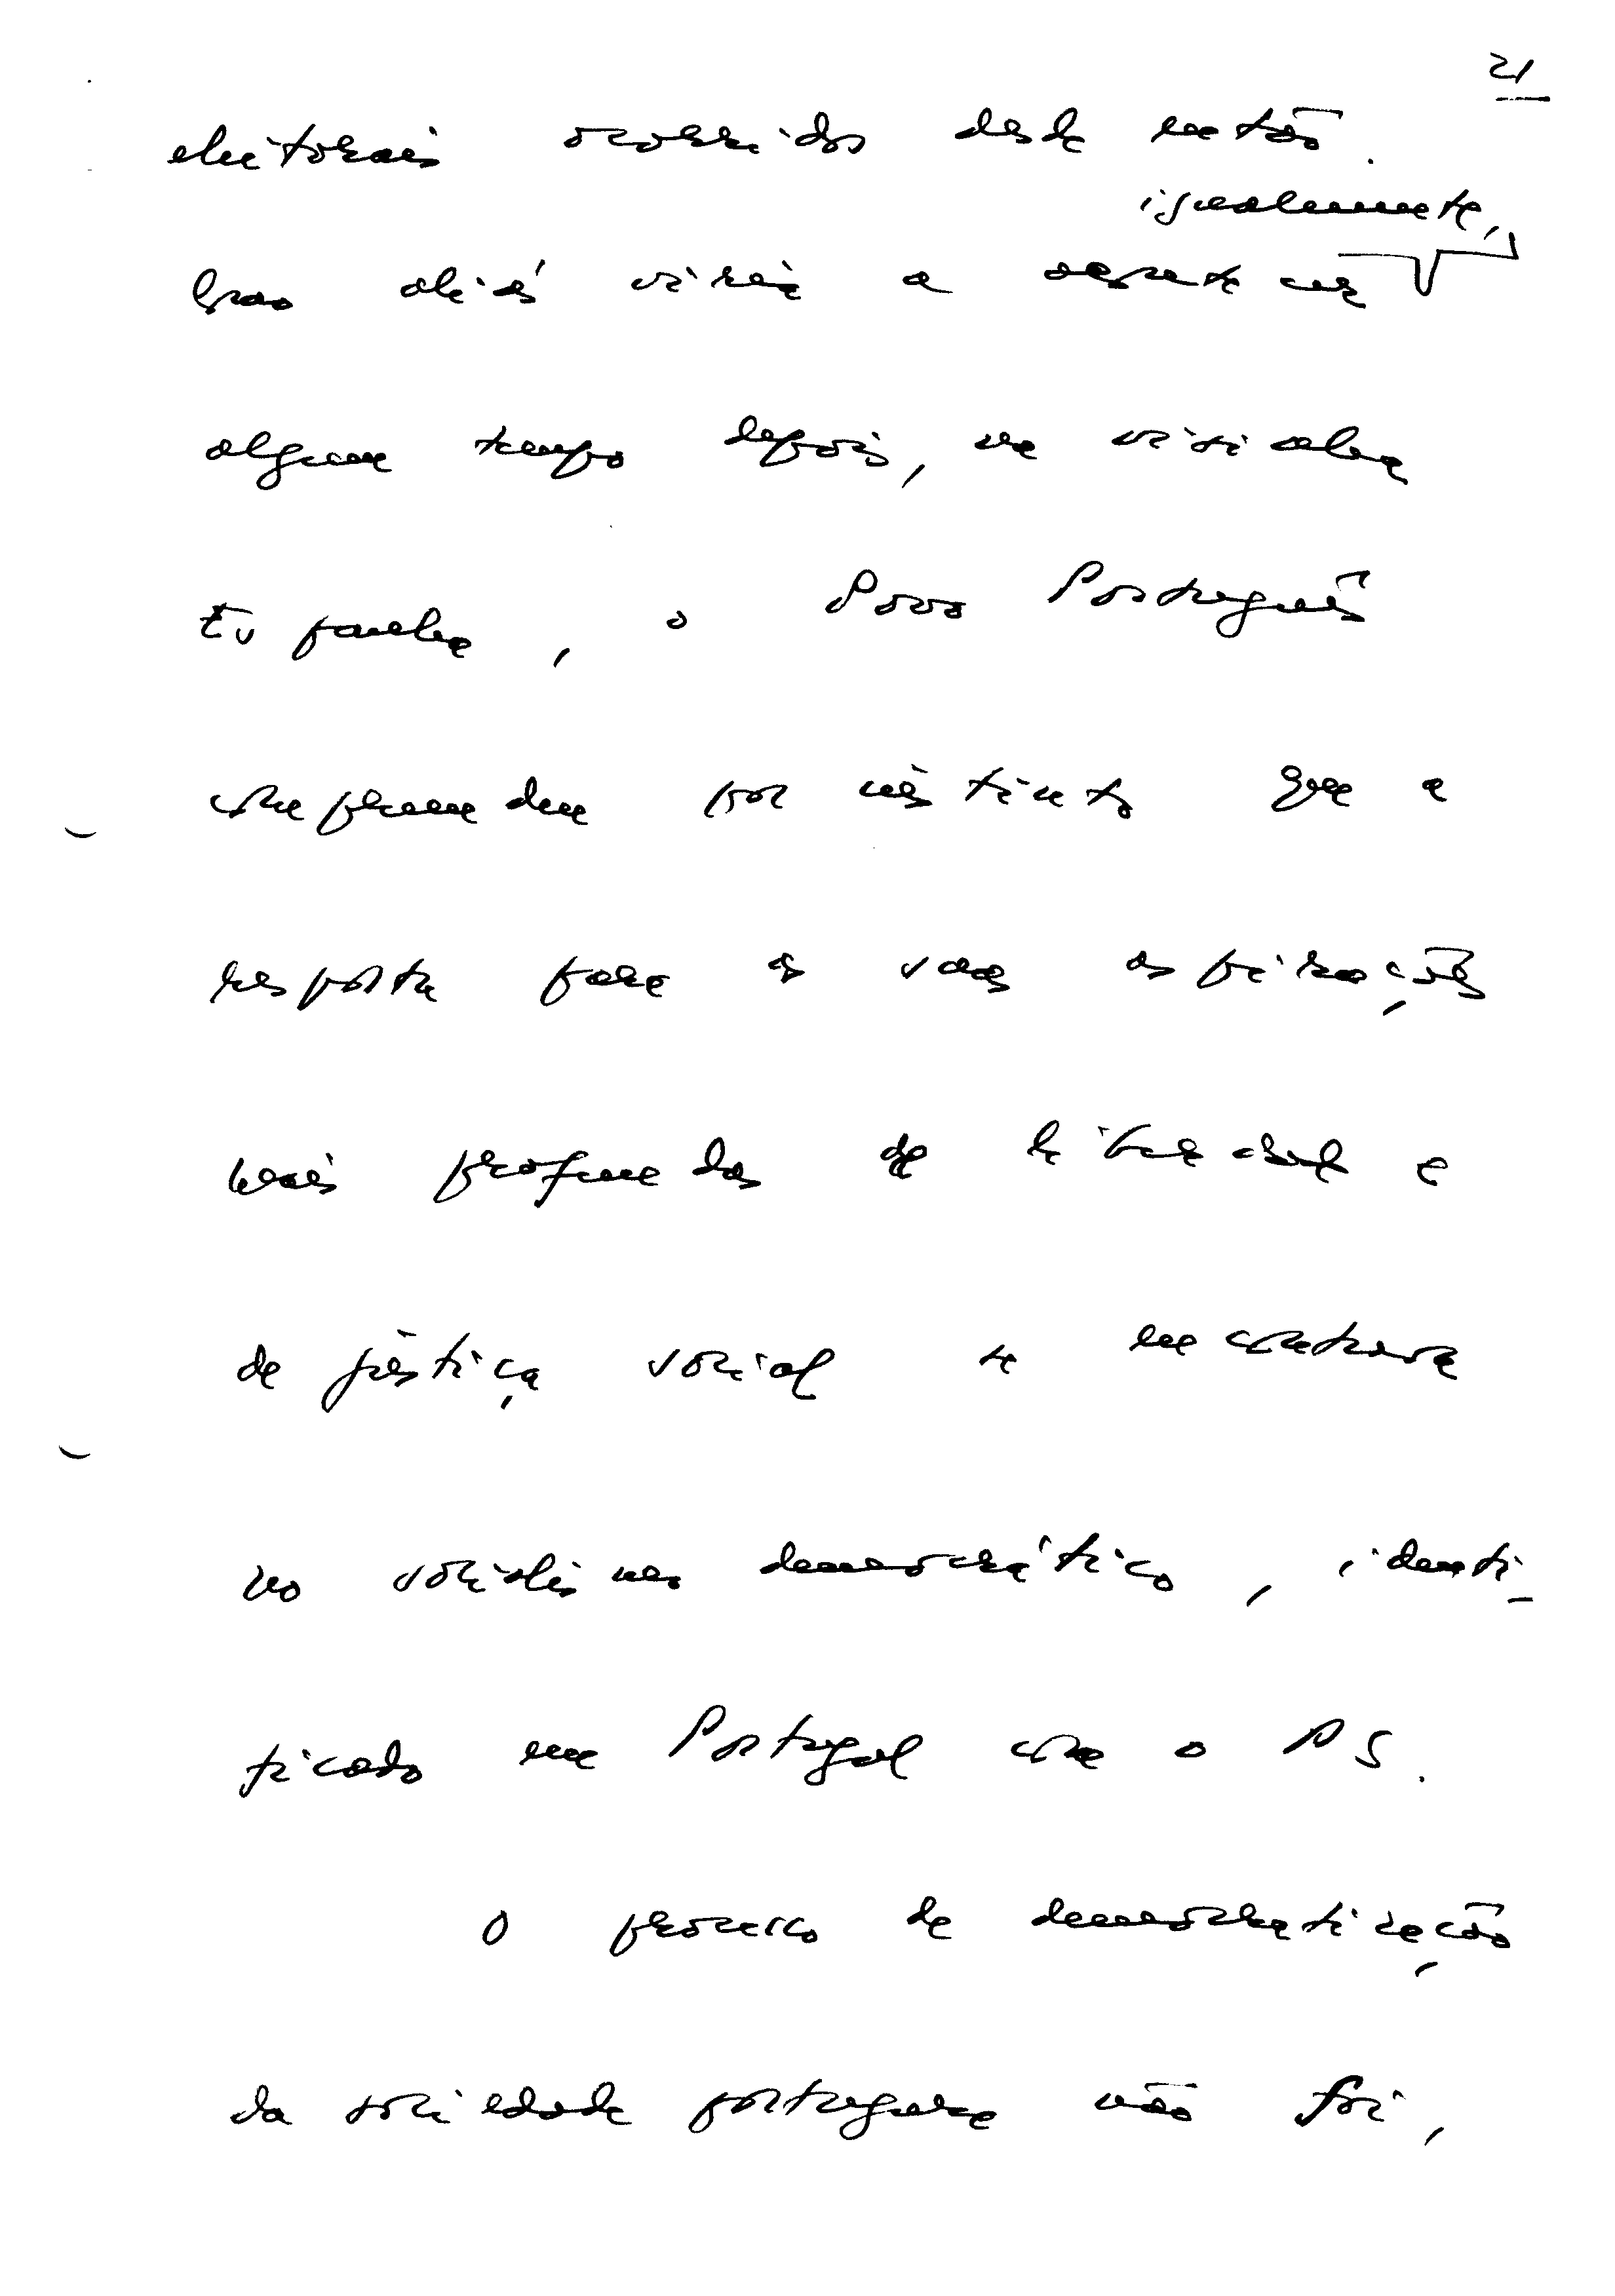 21
eleitorais ocorridos desde então.
igualmente,
Isso aliás viria a acontecer
algum tempo depois, na vizinha
Espanha, o Povo Português
compreendeu por instinto que a
resposta para as suas aspirações
mais profundas de liberdade e
de justiça social se encontrava
no socialismo democrático, identi-
ficado em Portugal com o PS.
O processo de democratização
da sociedade portuguesa não foi,